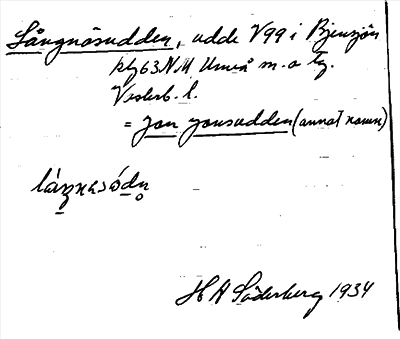 Långnäsudden, udde V99 i Bjensjön
kbl63NM, Umeå m. o tg.
Vesterb. l.
= Jon Jonsudden (annat namn)
H A Söderberg 1934